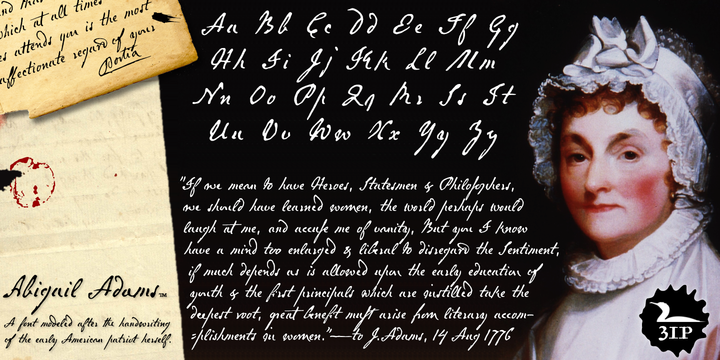 and that
which at all times
es attends you is the most
affectionate regard of your
Portia
Aa Bb Cc Dd Ee Ff Gg
Hh Ii Jj Kk Ll Mm
Nn Oo Pp Qq Rr Ss St
Uu Vv Ww Xx Yy Zz
"If we mean to have Heroes, Statesmen & Philosophers,
we should have learned women, the world perhaps would
laugh at me, and accuse me of vanity, But you I know
have a mind too enlarged & liberal to disregard the Sentiment,
if much depends as is allowed upon the early education of
youth & the first principals which are instilled take the
deepest root, great benefit must arise from literary accom–
=plishments in women."—to J.Adams, 14 Aug 1776
Abigail Adams™
A font modeled after the handwriting
of the early American patriot herself.
3IP